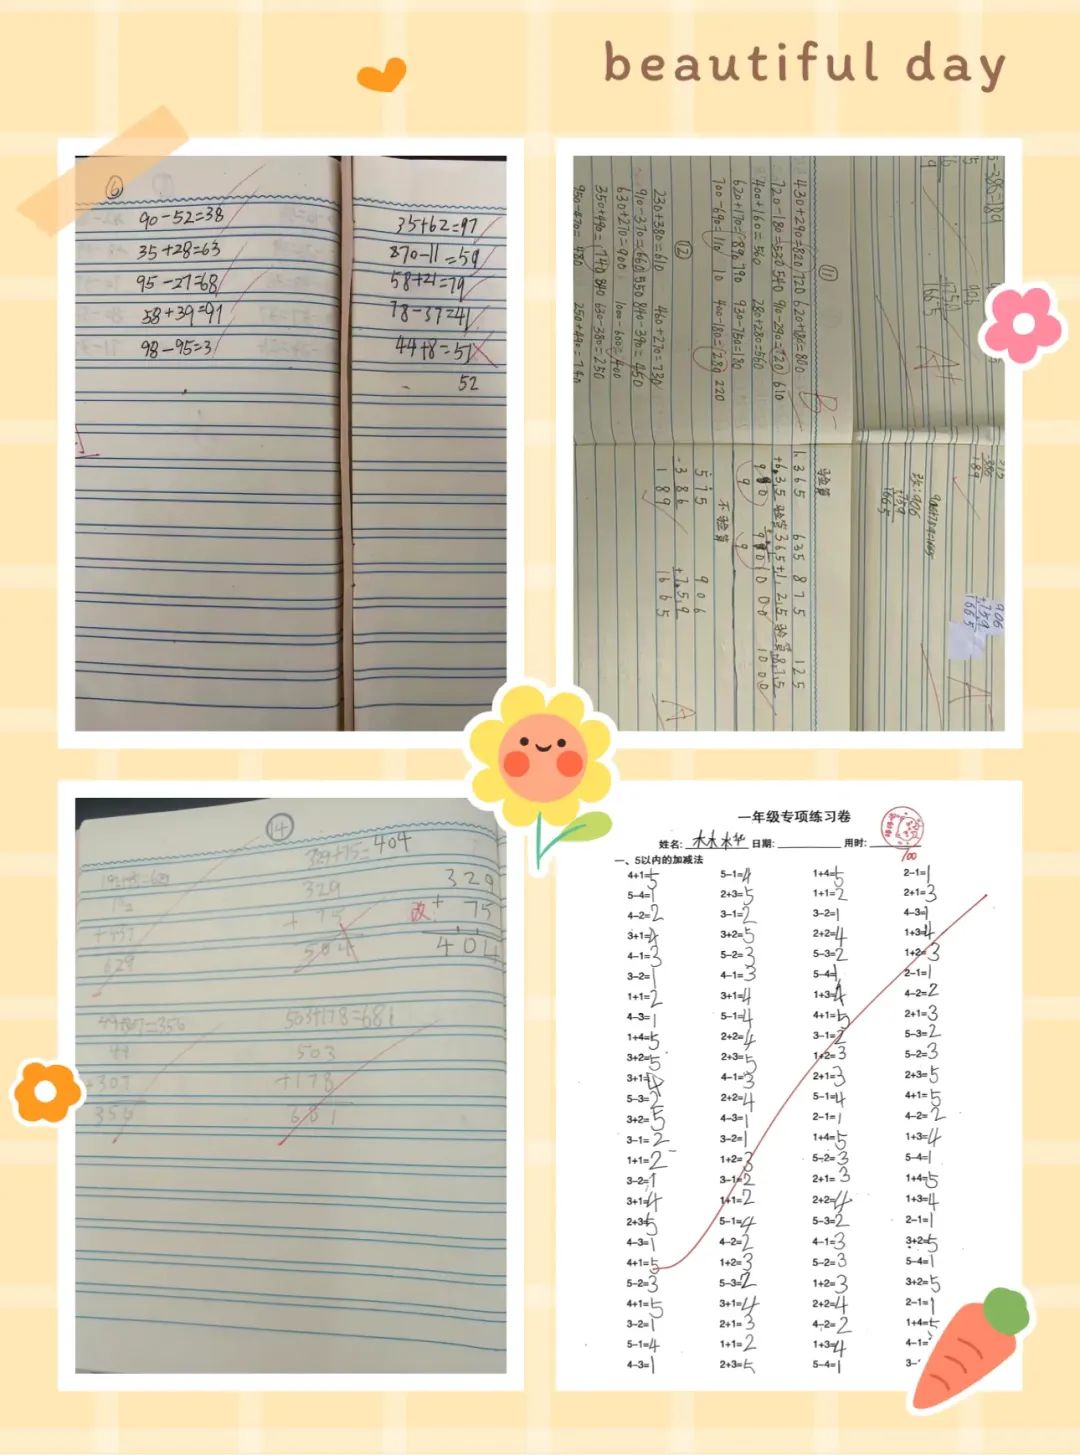 beautiful day
⑥
90-52=38
35+28=63
95-27=68
58+39=91
98-95=3
35+62=97
870-11=59
58+21=79
78-37=41
44+8=51
52
⑪
430+290=820 720 620+180=800
720-180=520 540 910-290=720 610
400+160=560 280+280=560
620+170=890 790 930-750=180
700-690=110 10 400-180=280 220
⑫
230+380=610 460+270=730
910-370=660 550 840-390=450
630+270=900 1000-600=400
350+490=740 840 630-380=250
950-470=480 250+490=740
验算
不验算
515
-386
189
906
+759
1665
A
⑭
329+75=404
329
+ 75
504
改:
329
+ 75
404
629
49+307=356
49
+307
356
503+178=681
503
+178
681
一年级专项练习卷
姓名: 林林华 日期: 用时:
100
一、5以内的加减法
4+1=5 5-1=4 1+4=5 2-1=1
5-4=1 2+3=5 1+1=2 2+1=3
4-2=2 3-1=2 3-2=1 4-3=1
3+1=4 3+2=5 2+2=4 1+3=4
4-1=3 5-2=3 5-3=2 1+2=3
3-2=1 4-1=3 5-4=1 2-1=1
1+1=2 3+1=4 1+3=4 4-2=2
4-3=1 5-1=4 4+1=5 2+1=3
1+4=5 2+2=4 3-1=2 5-3=2
3+2=5 2+3=5 1+2=3 5-2=3
3+1=4 4-1=3 2+1=3 2+3=5
5-3=2 2+2=4 5-1=4 4+1=5
3+2=5 4-3=1 2-1=1 4-2=2
3-1=2 3-2=1 1+4=5 1+3=4
1+1=2 1+2=3 5-2=3 5-4=1
3-2=1 3-1=2 2+1=3 1+4=5
3+1=4 1+1=2 2+2=4 1+3=4
2+3=5 5-1=4 5-3=2 2-1=1
4-3=1 4-2=2 4-1=3 3+2=5
4+1=5 1+2=3 5-2=3 5-4=1
5-2=3 5-3=2 1+2=3 3+2=5
4+1=5 3+1=4 2+2=4 2-1=1
3-2=1 2+1=3 4-2=2 1+4=5
5-1=4 1+1=2 1+3=4 4-1=
4-3=1 2+3=5 5-4=1 3-